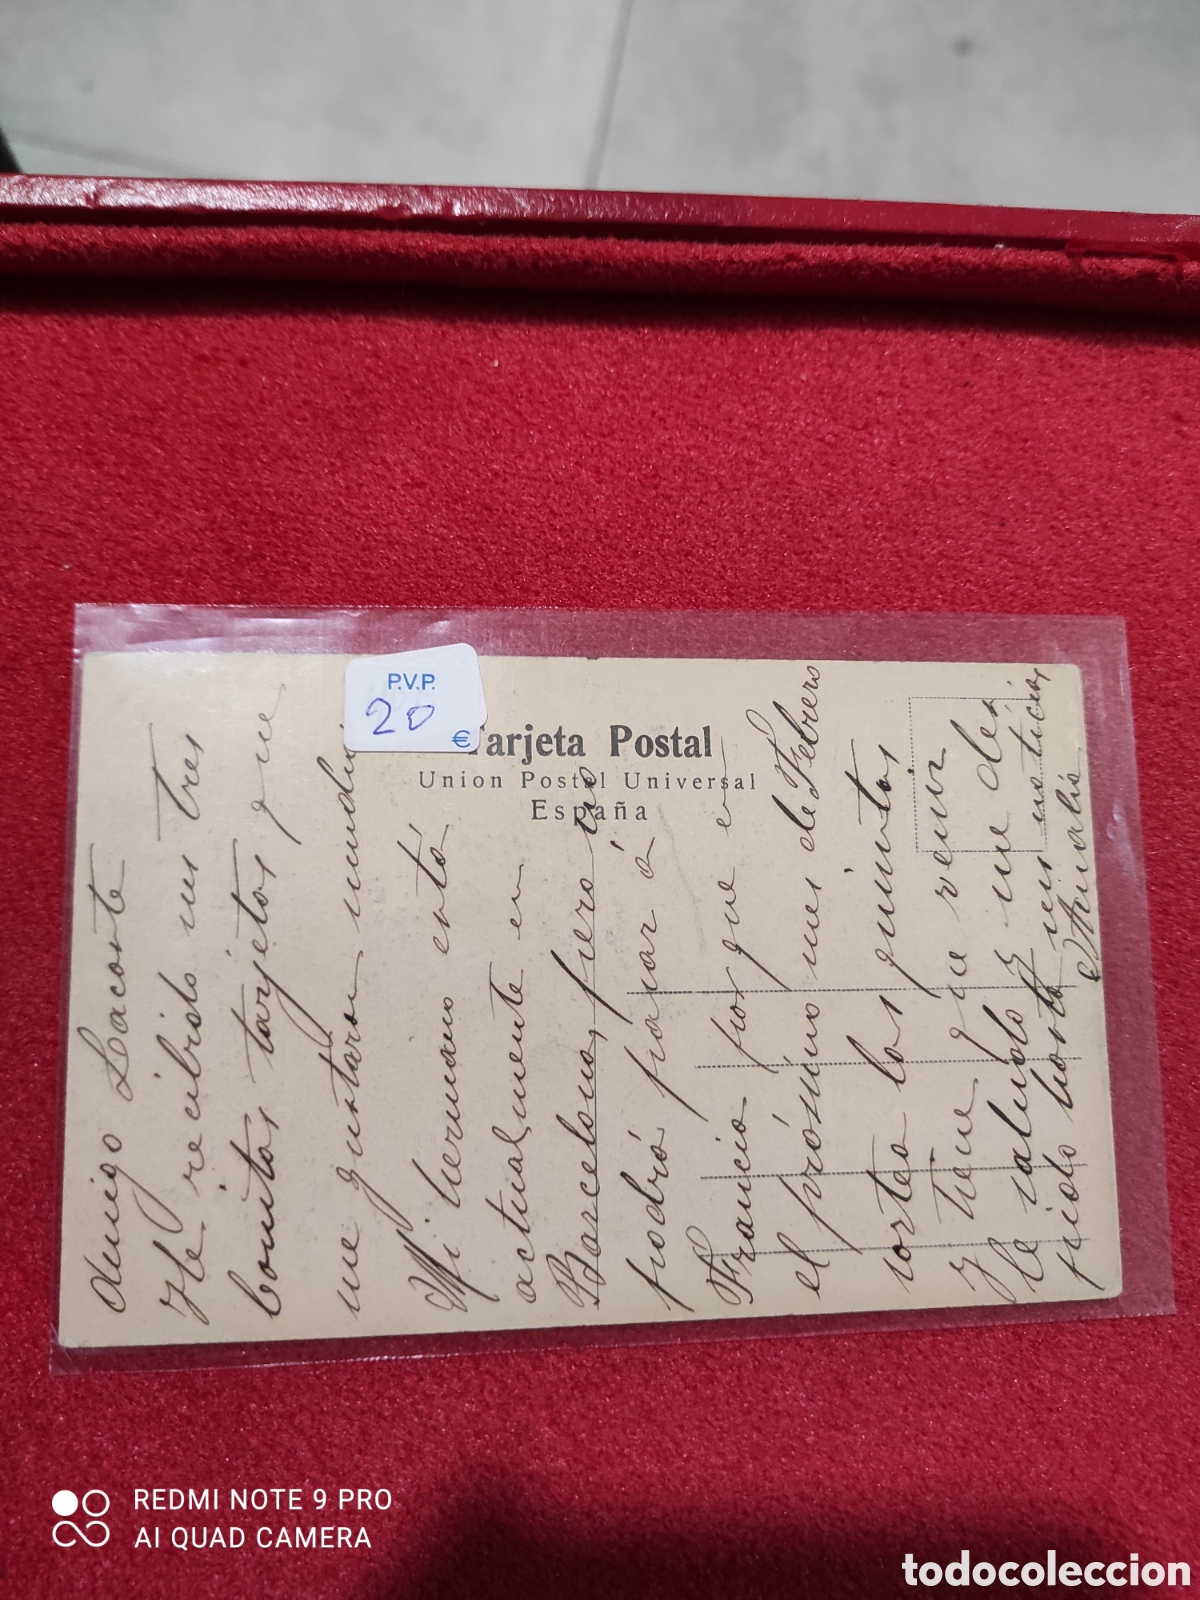 P.V.P.
20
€
Tarjeta Postal
Union Postal Universal
España
Amigo Lacoste
He recibido sus tres
bonitas tarjetas que
me gustaron mucho
Mi hermano está
actualmente en
Barcelona, pero no
podrá pasar á
Francia por que en
el próximo mes de Febrero
sortea los quintos
y tiene que venir
le saludo y me des
pido hasta sus noticias
REDMI NOTE 9 PRO
AI QUAD CAMERA
todocoleccion